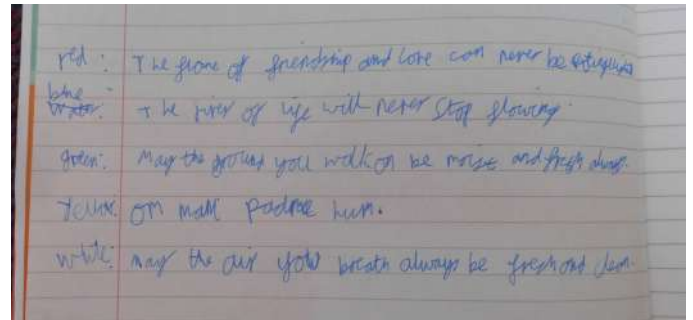 red: The flame of friendship and love can never be extinguished
blue: The river of life will never stop flowing.
green: May the ground you walk on be moist and fresh always.
Yellow: om mani padme hum.
white: may the air you breath always be fresh and clean.